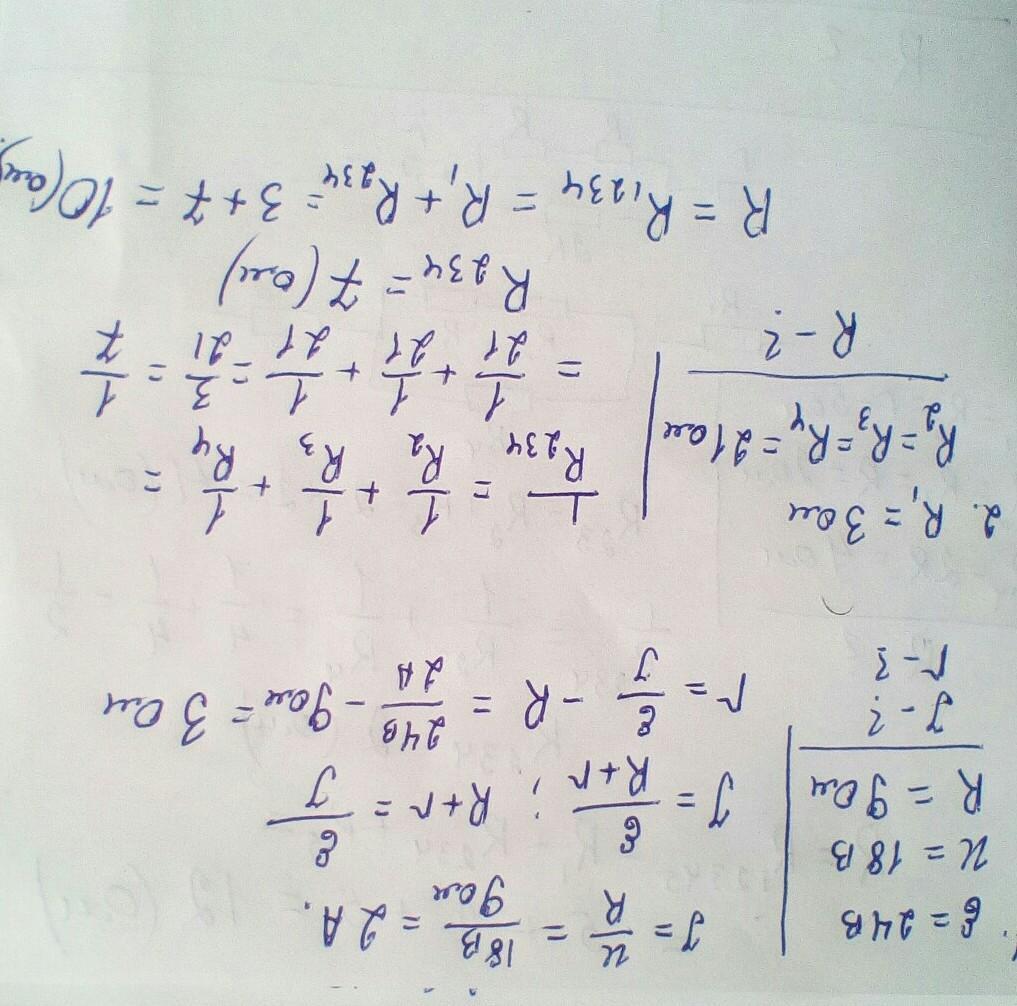 1. ℰ = 24В
U = 18В
R = 9Ом
I - ?
r - ?
I = U/R = 18В/9Ом = 2А.
I = ℰ/(R+r) ; R+r = ℰ/I
r = ℰ/I - R = 24В/2А - 9Ом = 3Ом
2. R₁ = 3Ом
R₂=R₃=R₄=21Ом
R - ?
1/R₂₃₄ = 1/R₂ + 1/R₃ + 1/R₄ =
= 1/21 + 1/21 + 1/21 = 3/21 = 1/7
R₂₃₄ = 7(Ом)
R = R₁₂₃₄ = R₁ + R₂₃₄ = 3+7 = 10(Ом).